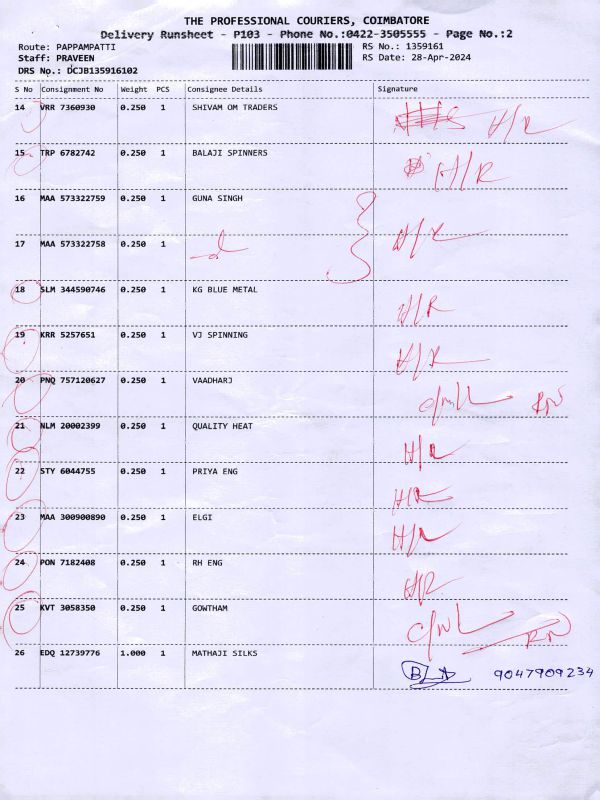 THE PROFESSIONAL COURIERS, COIMBATORE
Delivery Runsheet - P103 - Phone No.:0422-3505555 - Page No.:2
Route: PAPPAMPATTI RS No.: 1359161
Staff: PRAVEEN RS Date: 28-Apr-2024
DRS No.: DCJB135916102
S No Consignment No Weight PCS Consignee Details Signature
14 VRR 7360930 0.250 1 SHIVAM OM TRADERS H/R
15 TRP 6782742 0.250 1 BALAJI SPINNERS H/R
16 MAA 573322759 0.250 1 GUNA SINGH
17 MAA 573322758 0.250 1 H/R
18 SLM 344590746 0.250 1 KG BLUE METAL H/R
19 KRR 5257651 0.250 1 VJ SPINNING H/R
20 PNQ 757120627 0.250 1 VAADHARJ
21 NLM 20002399 0.250 1 QUALITY HEAT H/R
22 STY 6044755 0.250 1 PRIYA ENG H/R
23 MAA 300900890 0.250 1 ELGI H/R
24 PON 7182408 0.250 1 RH ENG H/R
25 KVT 3058350 0.250 1 GOWTHAM
26 EDQ 12739776 1.000 1 MATHAJI SILKS 9047909234